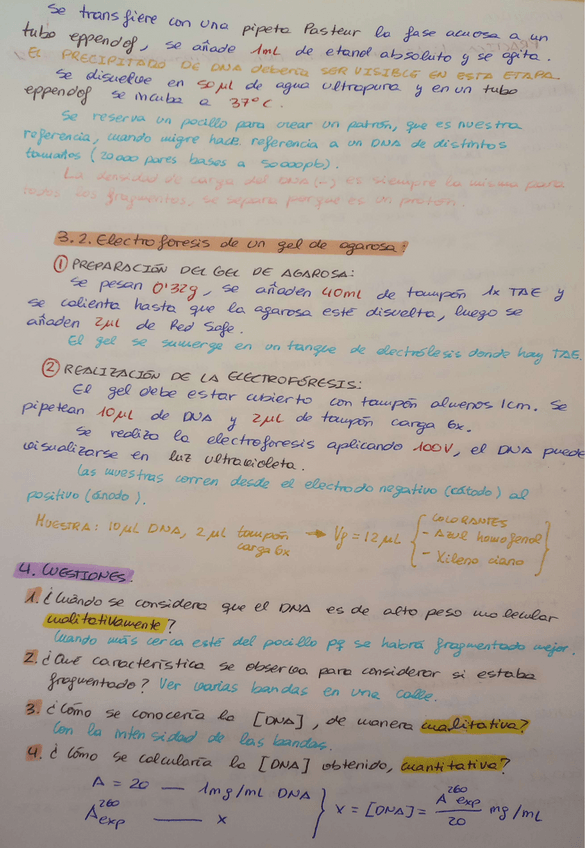 Se transfiere con una pipeta Pasteur la fase acuosa a un
tubo eppendof, se añade 1mL de etanol absoluto y se agita.
EL PRECIPITADO DE DNA debería SER VISIBLE EN ESTA ETAPA.
Se disuelve en 50 µL de agua ultrapura y en un tubo
eppendof se incuba a 37ºC.
Se reserva un pocillo para crear un patrón, que es nuestra
referencia, cuando migre hace referencia a un DNA de distintos
tamaños (20000 pares bases a 50000pb).
La densidad de carga del DNA (-) es siempre la misma para
todos los fragmentos, se separa porque es un protón.
3.2. Electroforesis de un gel de agarosa:
① PREPARACIÓN DEL GEL DE AGAROSA:
Se pesan 0'32g, se añaden 40mL de tampón 1x TAE y
se calienta hasta que la agarosa esté disuelta, luego se
añaden 2µL de Red Safe.
El gel se sumerge en un tanque de electrólesis donde hay TAE.
② REALIZACIÓN DE LA ELECTROFÓRESIS:
El gel debe estar cubierto con tampón almenos 1cm. Se
pipetean 10µL de DNA y 2µL de tampón carga 6x.
Se realiza la electroforesis aplicando 100V, el DNA puede
visualizarse en luz ultravioleta.
Las muestras corren desde el electrodo negativo (cátodo) al
positivo (ánodo).
MUESTRA: 10µL DNA, 2 µL tampón carga 6x → Vf = 12µL { COLORANTES
- Azul homofenol
- Xileno ciano }
4. CUESTIONES
1. ¿Cuándo se considera que el DNA es de alto peso molecular
cualitativamente?
Cuando más cerca esté del pocillo pq se habrá fragmentado mejor.
2. ¿Qué característica se observa para considerar si estaba
fragmentado? Ver varias bandas en una calle.
3. ¿Cómo se conocería la [DNA], de manera cualitativa?
Con la intensidad de las bandas.
4. ¿Cómo se calcularía la [DNA] obtenido, cuantitativa?
A = 20 — 1mg/mL DNA
A²⁶⁰exp — x } X = [DNA] = A²⁶⁰exp / 20 mg/mL